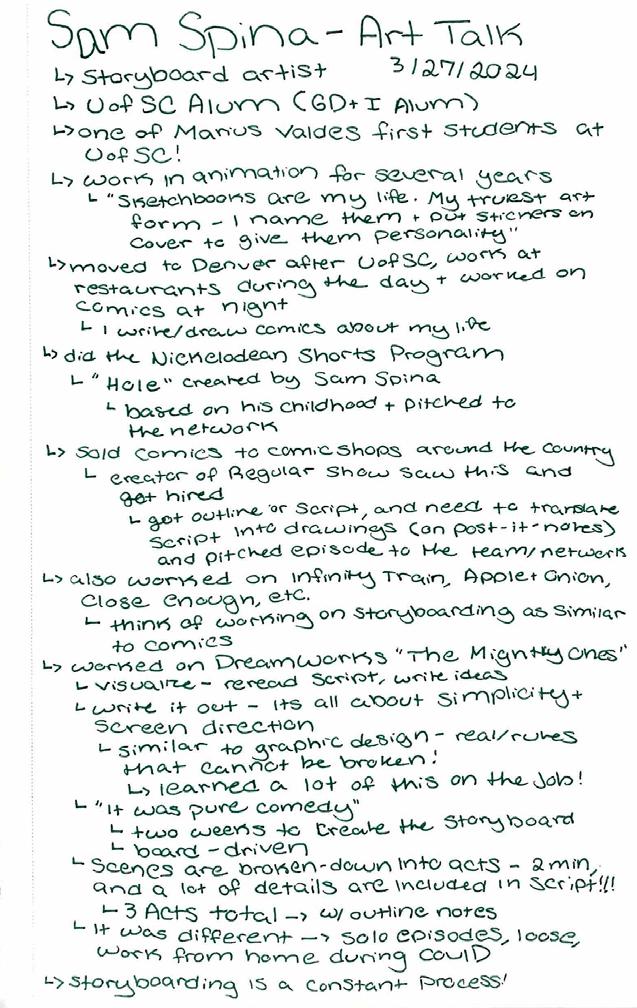 Sam Spina - Art Talk
↳ Storyboard artist 3/27/2024
↳ UofSC Alum (GD+I Alum)
↳ one of Marius Valdes first students at
UofSC!
↳ work in animation for several years
↳ "Sketchbooks are my life. My truest art
form - I name them + put stickers on
cover to give them personality"
↳ moved to Denver after UofSC, work at
restaurants during the day + worked on
comics at night
↳ I write/draw comics about my life
↳ did the Nickelodean Shorts Program
↳ "Hole" created by Sam Spina
↳ based on his childhood + pitched to
the network
↳ Sold comics to comic shops around the country
↳ creator of Regular Show saw this and
got hired
↳ got outline or script, and need to translate
script into drawings (on post-it-notes)
and pitched episode to the team/network
↳ also worked on Infinity Train, Apple + Onion,
Close Enough, etc.
↳ think of working on storyboarding as similar
to comics
↳ worked on DreamWorks "The Mighty Ones"
↳ visualize - reread script, write ideas
↳ write it out - its all about simplicity +
screen direction
↳ similar to graphic design - real/rules
that cannot be broken!
↳ learned a lot of this on the job!
↳ "It was pure comedy"
↳ two weeks to create the storyboard
↳ board-driven
↳ Scenes are broken-down into acts - 2 min,
and a lot of details are included in script!!!
↳ 3 Acts total → w/ outline notes
↳ It was different → solo episodes, loose,
work from home during COVID
↳ storyboarding is a constant process!